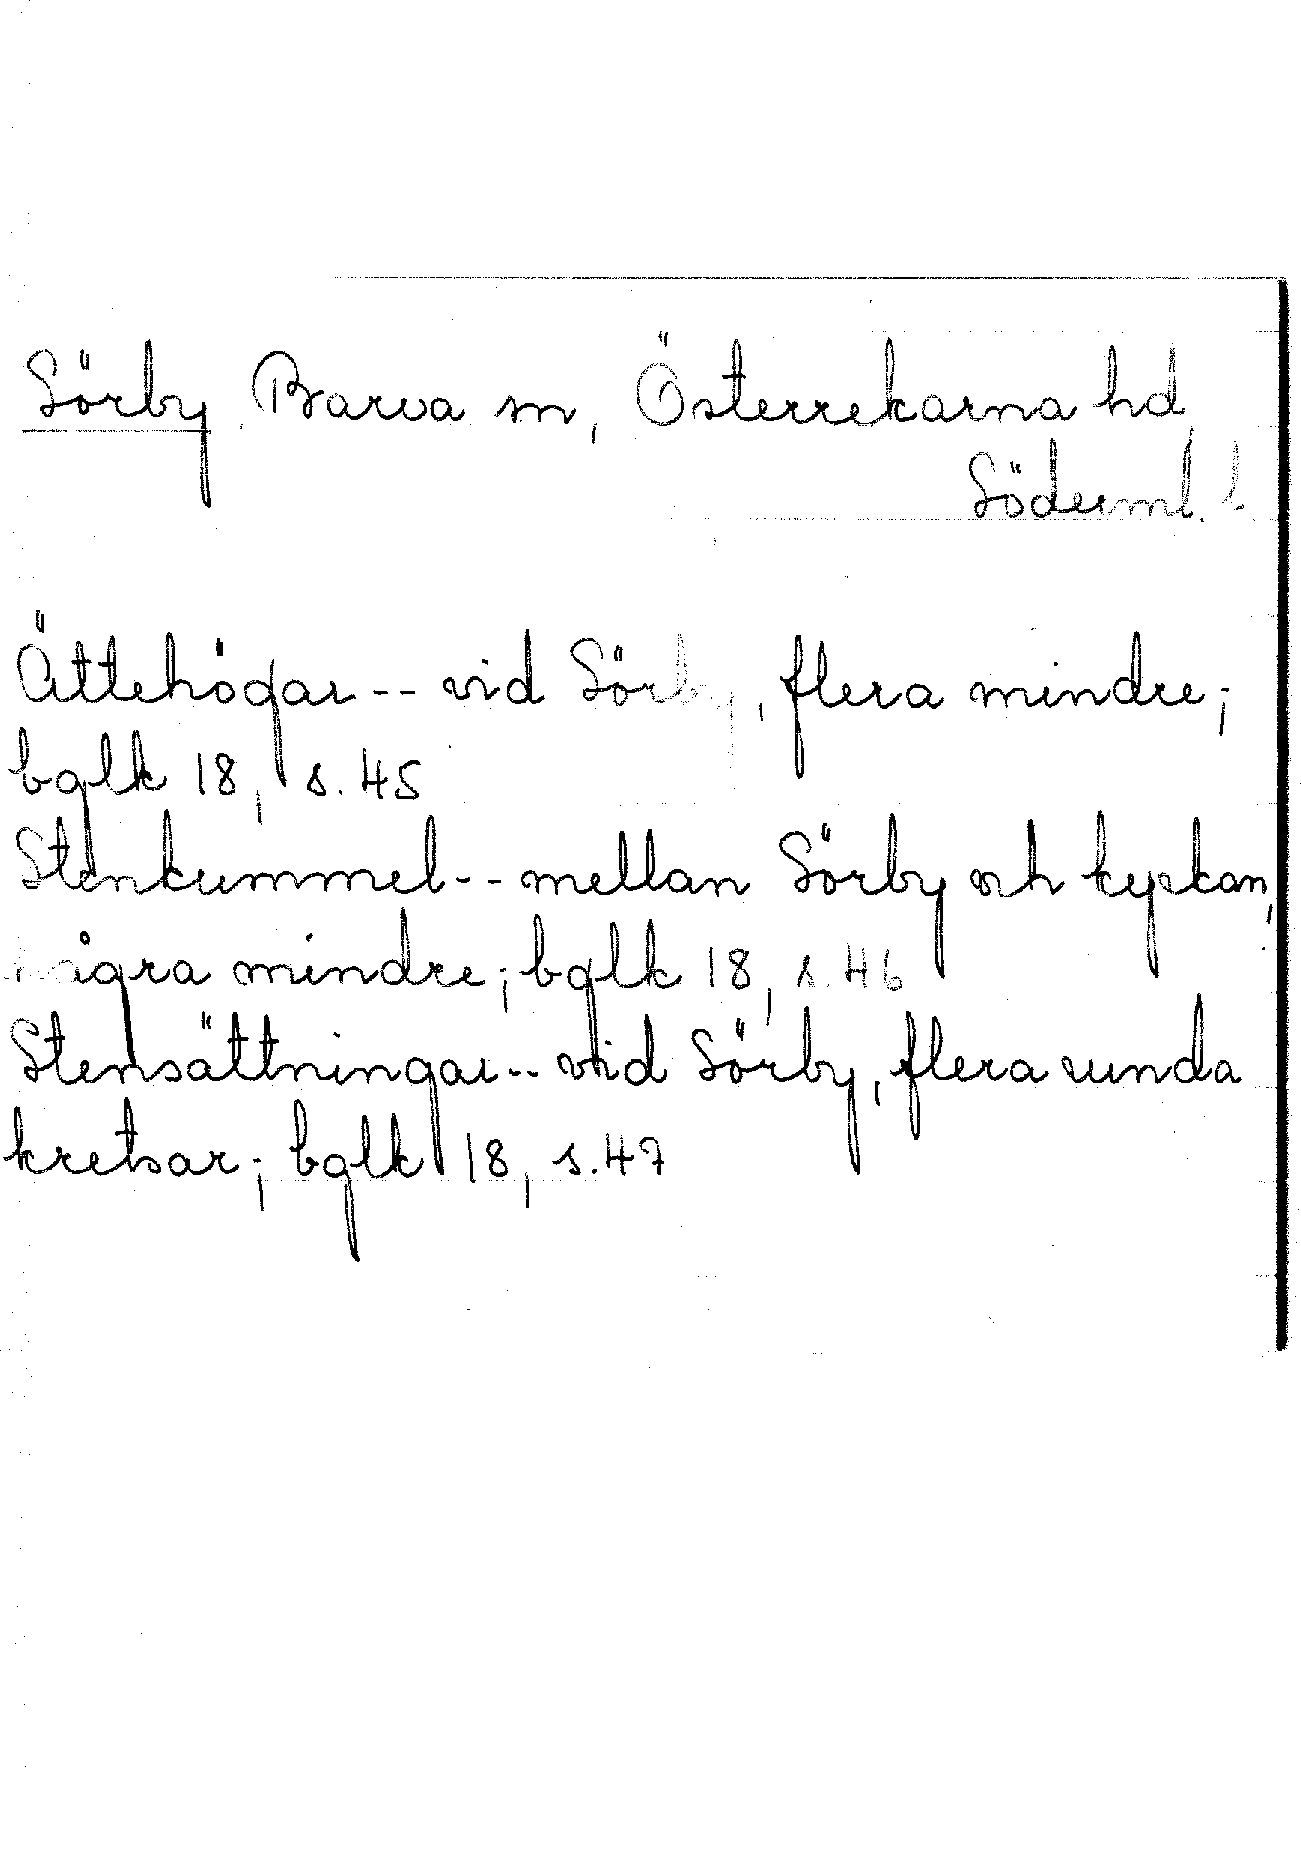 Sörby Barva sn, Österrekarna hd
Söderml. l.
Ättehögar -- vid Sörby, flera mindre;
bglk 18, s. 45
Stenkummel -- mellan Sörby och kyrkan,
några mindre; bglk 18, s. 46
Stensättningar -- vid Sörby, flera runda
kretsar; bglk 18, s. 47